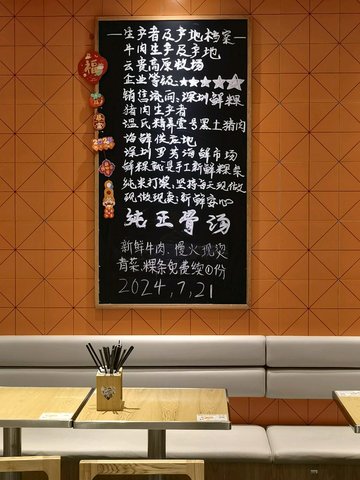 生产者及产地档案
牛肉生产及产地
云贵高原牧场
企业等级:★★★★★
销售流向:深圳鲜粿
猪肉生产者
温氏精养壹号黑土猪肉
海鲜供应地
深圳罗芳海鲜市场
鲜粿就是手工新鲜粿条
纯米打浆,坚持每天现做
现做现卖:新鲜安心
纯正骨汤
新鲜牛肉、慢火现熬
青菜、粿条免费续①份
2024,7,21
福